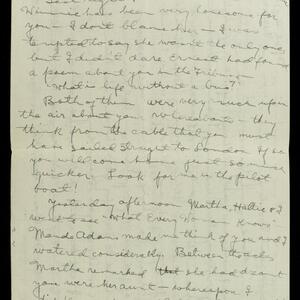 Winnie have been very lonesome for
you — I don't blame her — I was
tempted to say she wasn't the only one,
but I didn't dare. Ernest had found
a poem about you in the Tribune —
"what is life without a
Both of them were very much up in
the air about your whereabouts — they
think from the cable that you must
have sailed straight to London. If so
you will come home just so much
quicker. Look for me in the pilot
boat!
Yesterday afternoon Martha, Hattie & I
went to see "What Every Woman Knows"
Maude Adams made me think of you and I
watered considerably. Between the acts
Martha remarked that she had dreamt
you were her aunt — whereupon I